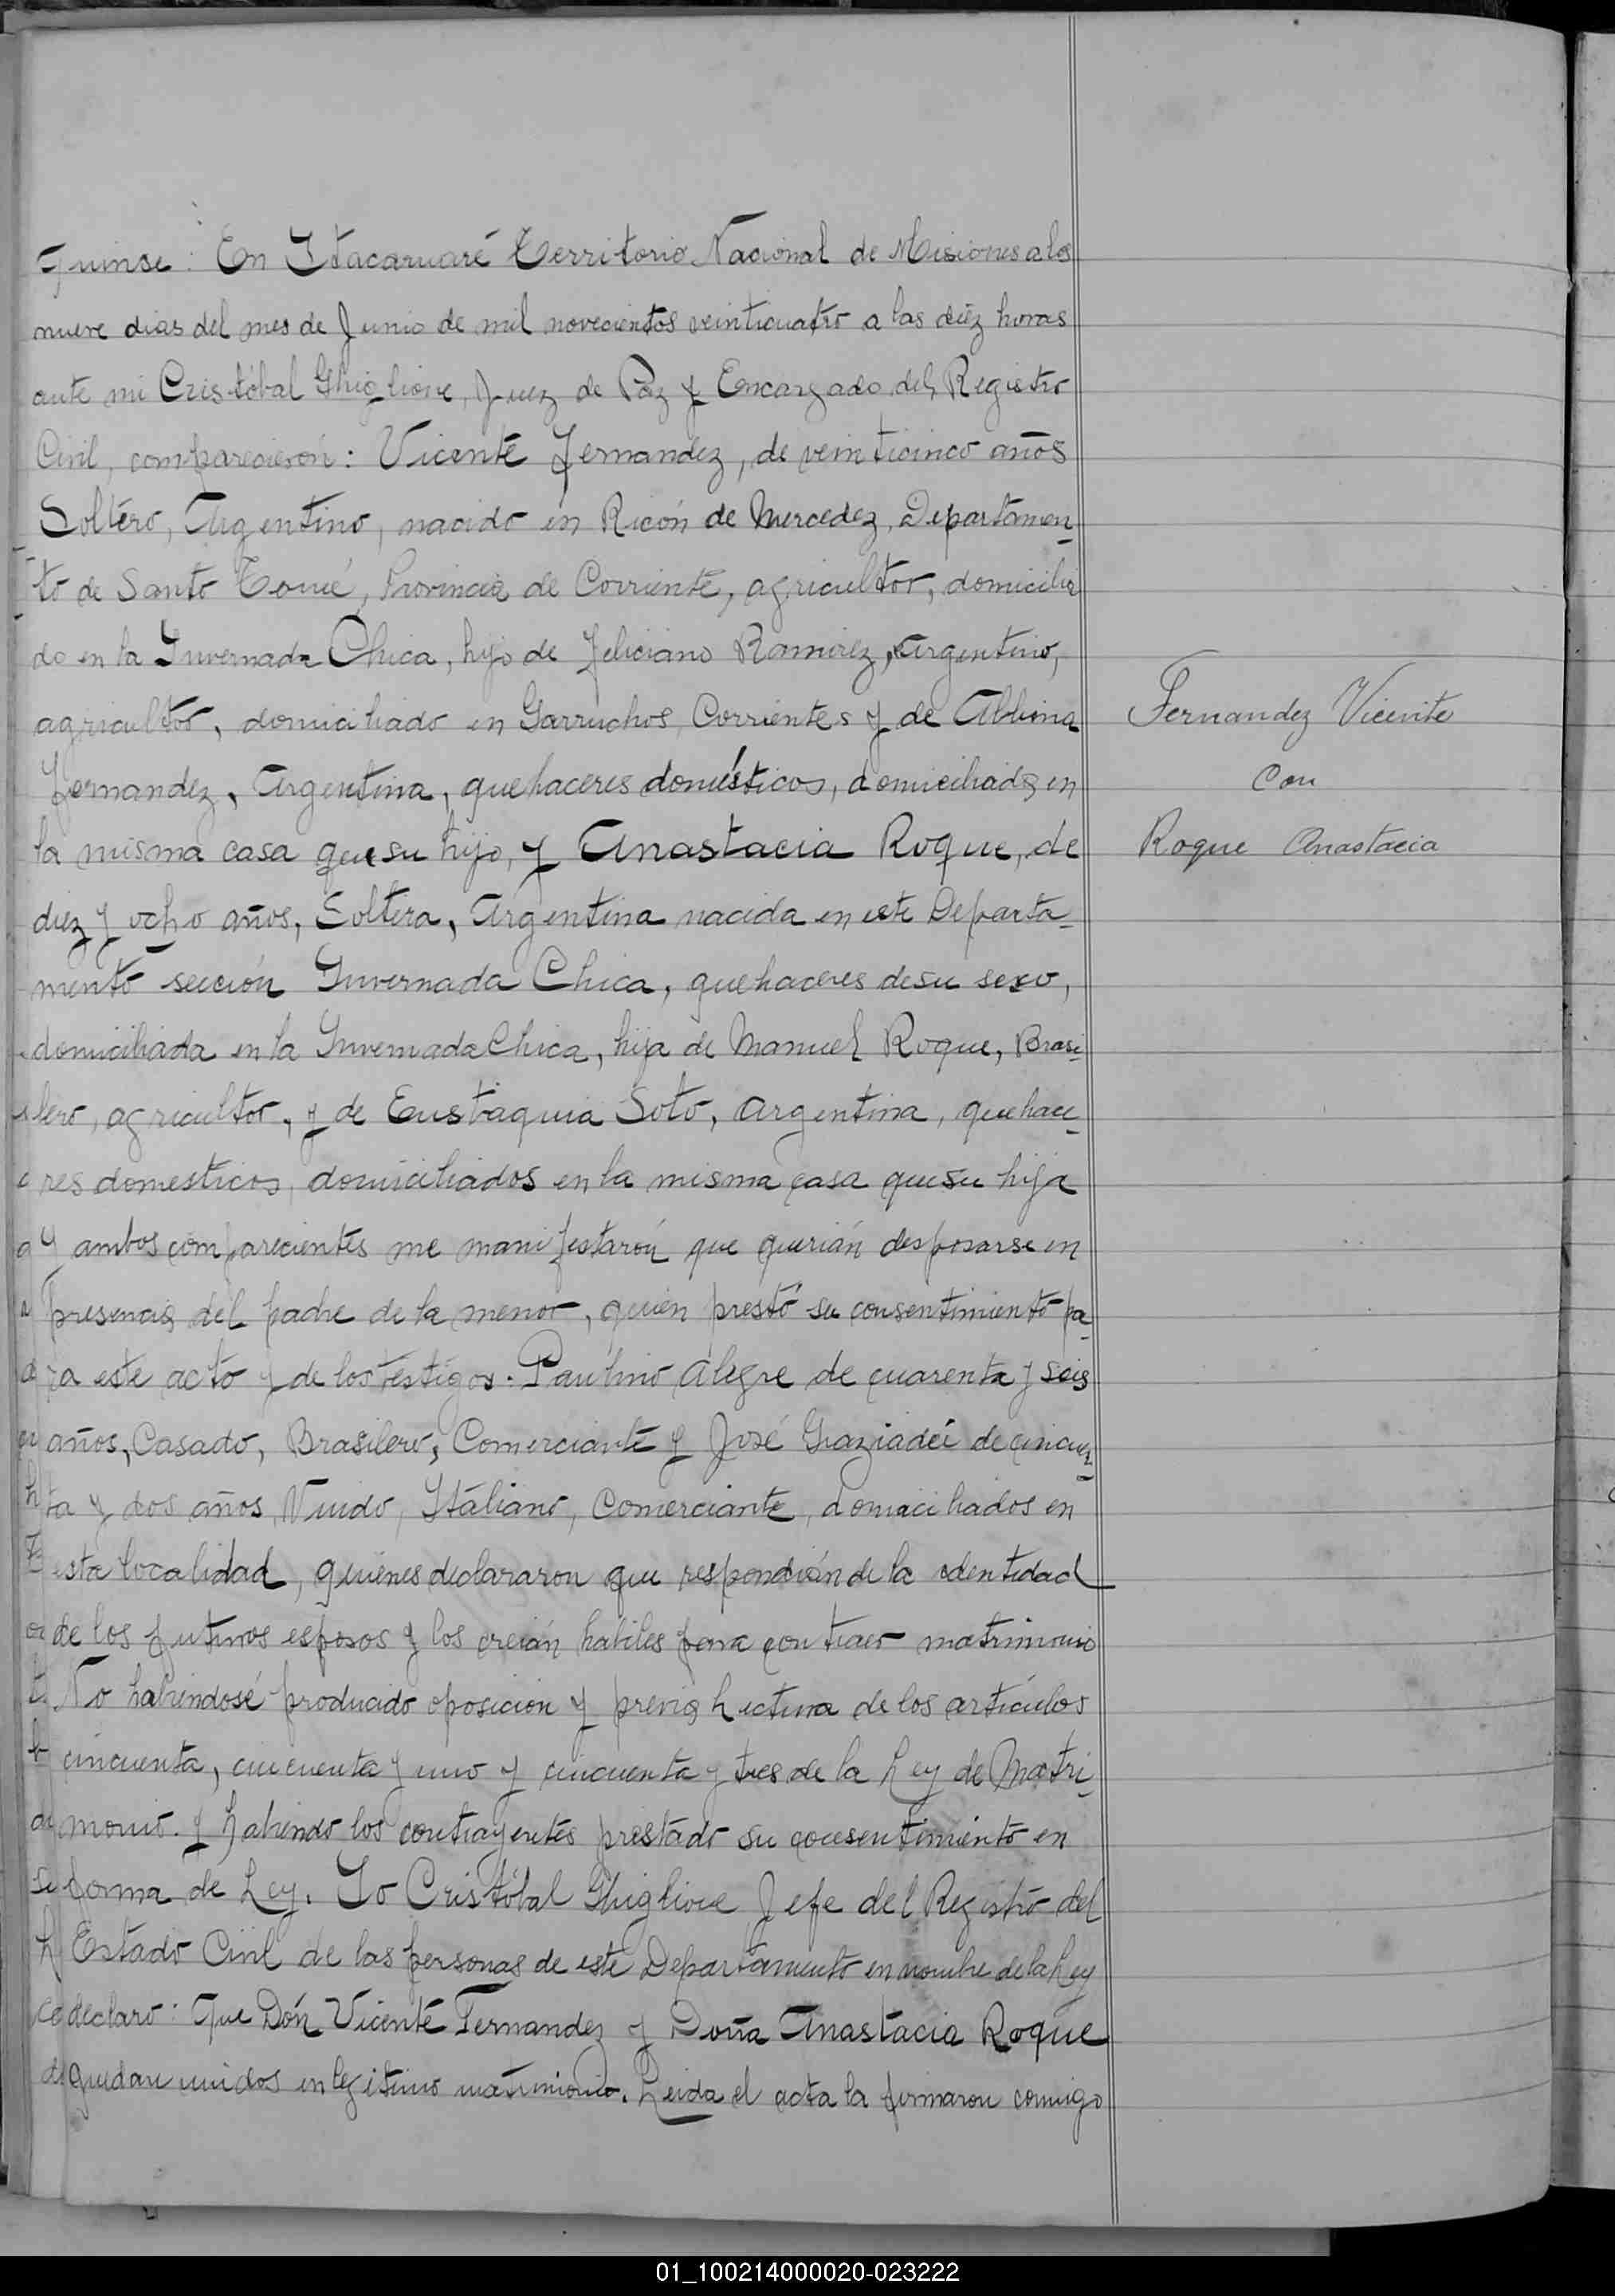 Quinse: En Itacaruaré Territorio Nacional de Misiones a los
nueve dias del mes de Junio de mil novecientos veinticuatro a las diéz horas
ante mi Cristóbal Ghiglione, Juez de Paz y Encargado del Registro
Civil, comparecierón: Vicente Fernandez, de veinticinco años
Soltero, Argentino, nacido en Ricón de Mercedez, Departamen-
to de Santo Tomé, Provincia de Corriente, agricultor, domicilia
do en la Invernada Chica, hijo de Feliciano Ramirez, Argentino,
agricultor, domiciliado en Garruchos, Corrientes y de Albina
Fernandez, Argentina, quehaceres domésticos, domiciliados en
la misma casa que su hijo, y Anastacia Roque, de
diez y ocho años, Soltera, Argentina nacida en este Departa-
mento sección Invernada Chica, quehaceres de su sexo,
domiciliada en la Invernada Chica, hija de Manuel Roque, Brasi-
lero, agricultor, y de Eustaquia Soto, Argentina, quehace-
res domesticos, domiciliados en la misma casa que su hija
Y ambos comparecientes me manifestarón que querián desposarse en
presencia del padre de la menor, quien prestó su consentimiento pa-
ra este acto y de los testigos. Paulino Alegre de cuarenta y seis
años, Casado, Brasilero, Comerciante y José Graziadéi de cincuen-
ta y dos años, Viudo, Italiano, Comerciante, domiciliados en
esta localidad, quienes declararon que respondián de la identidad
de los futuros esposos y los creián habiles para contraer matrimonio
No habiendosé producido oposicion y previa lectura de los artículos
cincuenta, cincuenta y uno y cincuenta y tres de la Ley de Matri-
monio. y habiendo los contrayentes prestado su consentimiento en
forma de Ley. Yo Cristóbal Ghiglione Jefe del Registro del
Estado Civil de las personas de este Departamento en nombre de la Ley
declaro: que Dón Vicente Fernandez y Doña Anastacia Roque
quedan unidos en legitimo matrimonio. Leida el acta la firmaron conmigo
Fernandez Vicente
con
Roque Anastacia
01_100214000020-023222